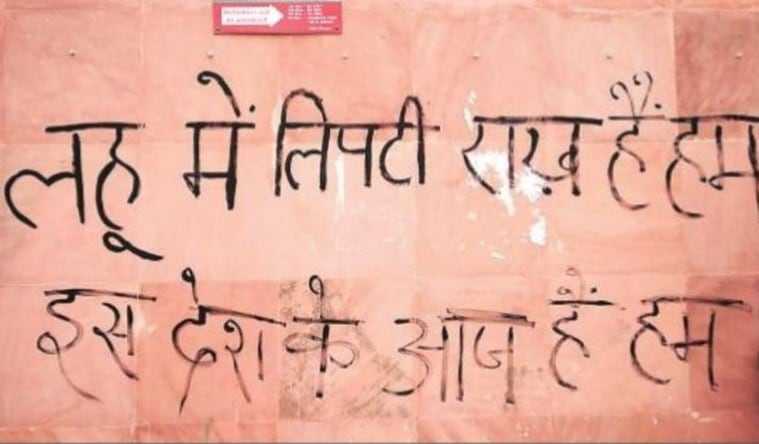 लहू में लिपटी राख़ हैं हम
इस देश के आज हैं हम